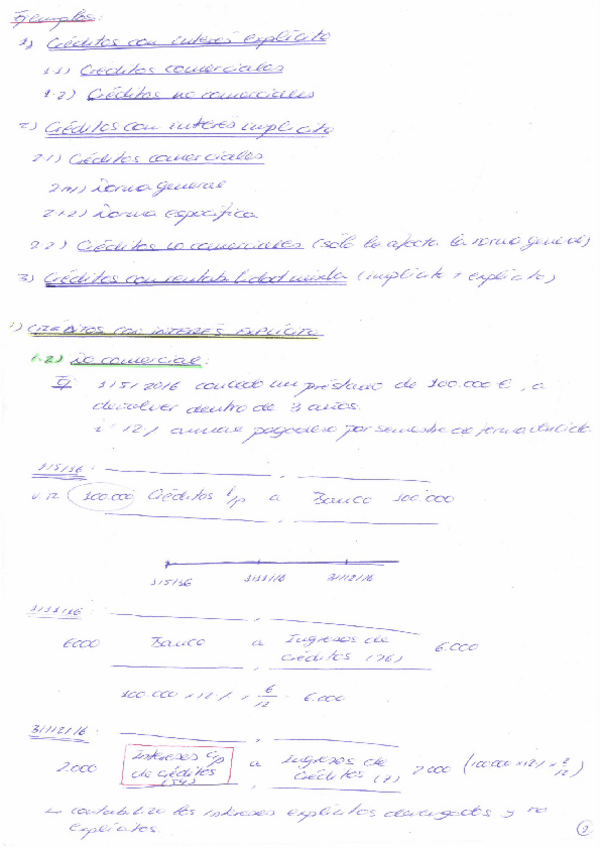 Ejemplos:
1) Créditos con interés explícito
1.1) Créditos comerciales
1.2) Créditos no comerciales
2) Créditos con interés implícito
2.1) Créditos comerciales
2.1.1) Norma general
2.1.2) Norma específica
2.2) Créditos no comerciales (sólo le afecta la norma general)
3) Créditos con rentabilidad mixta (implícito + explícito)
1) CRÉDITOS CON INTERÉS EXPLÍCITO
1.2) No comercial:
1/5/2016 concedo un préstamo de 100.000 €, a
devolver dentro de 3 años.
i: 12% anual pagadero por semestre de forma
1/5/16:
100.000 Créditos l/p a Banco 100.000
1/5/16 1/11/16 31/12/16
1/11/16:
6000 Banco a Ingresos de créditos (76) 6.000
100.000 x 12% x 6/12 = 6.000
31/12/16:
2.000 Intereses c/p de créditos (54) a Ingresos de créditos (7) 2.000 (100.000 x 12% x 2/12)
↳ contabilizo los intereses explícitos devengados y no
explícitos.
2